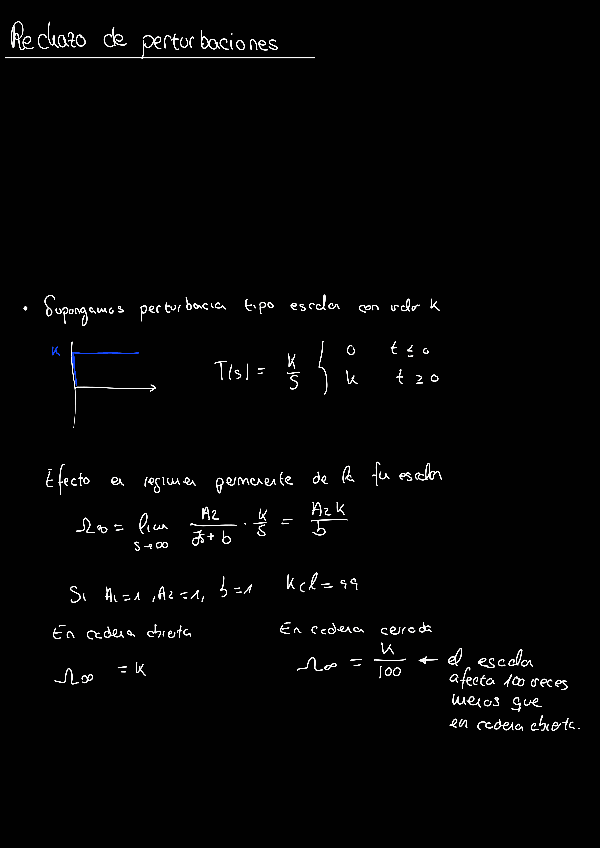 Rechazo de perturbaciones
• Supongamos perturbacia tipo escalon con valor k
K
T(s) = K/S { 0 t ≤ 0
k t ≥ 0
Efecto en regimen permanente de la fu escalon
Ω∞ = lim s→∞ A2/(Js+b) · K/S = A2 K/b
Si A1=1, A2=1, b=1 Kcl=99
En cadena abierta En cadena cerrada
Ω∞ = K Ω∞ = K/100 ← el escalon
afecta 100 veces
menos que
en cadena abierta.